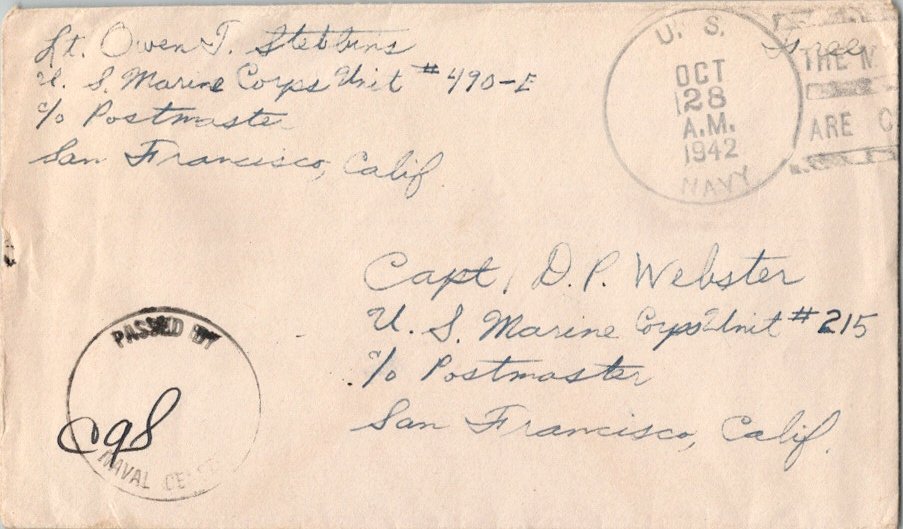 Lt. Owen T. Stebbins
U. S. Marine Corps Unit #490-E
c/o Postmaster
San Francisco, Calif.
U. S.
OCT
28
A.M.
1942
NAVY
Free
THE M
ARE
Capt. D. P. Webster
U. S. Marine Corps Unit #215
c/o Postmaster
San Francisco, Calif.
PASSED BY
NAVAL